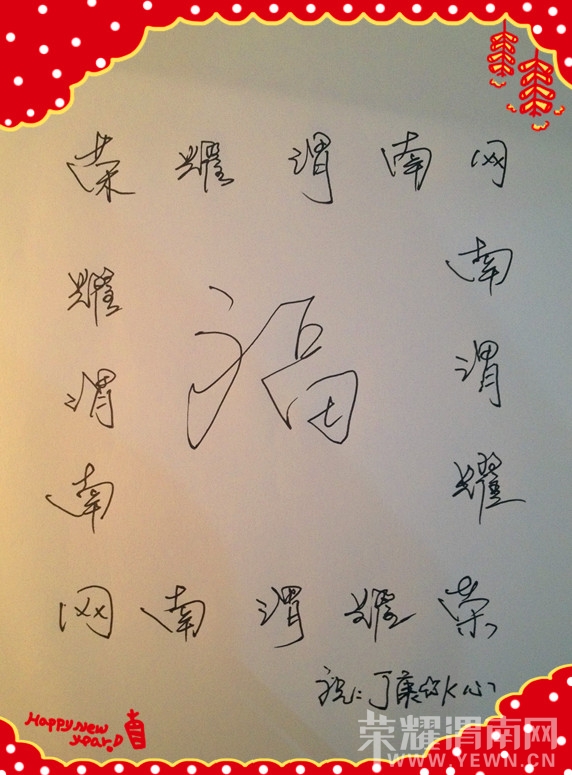 荣耀渭南网
耀 南
渭 福 渭
南 耀
网南渭耀荣
Happy new
year!
荣耀渭南网
WWW.YEWN.CN